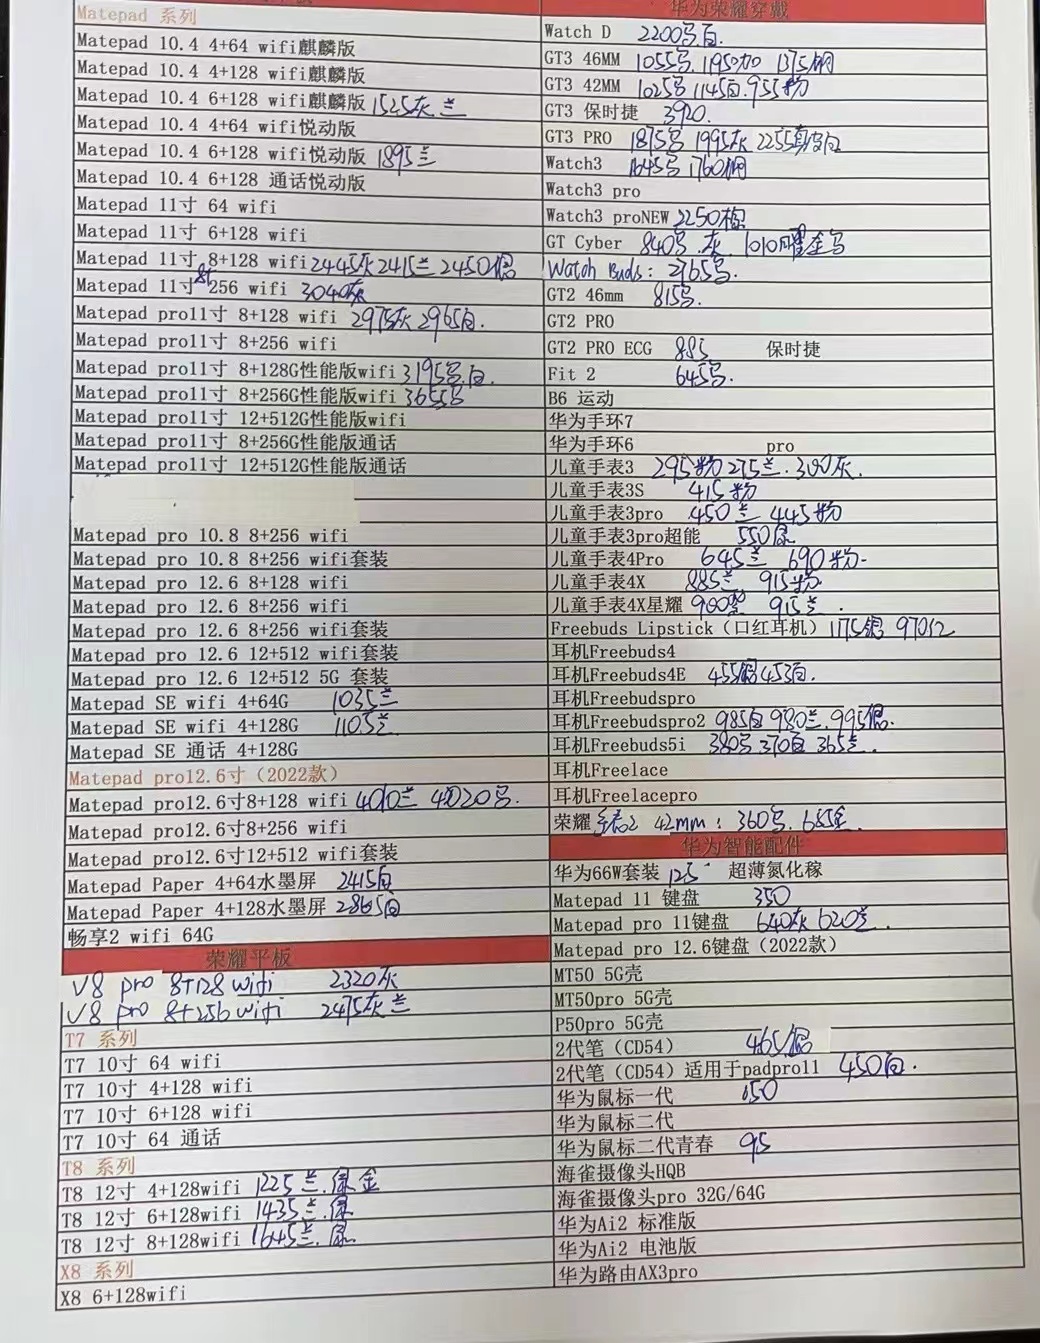 Matepad 系列
Matepad 10.4 4+64 wifi麒麟版
Matepad 10.4 4+128 wifi麒麟版
Matepad 10.4 6+128 wifi麒麟版 1525灰 兰
Matepad 10.4 4+64 wifi悦动版
Matepad 10.4 6+128 wifi悦动版 1895兰
Matepad 10.4 6+128 通话悦动版
Matepad 11寸 64 wifi
Matepad 11寸 6+128 wifi
Matepad 11寸 8+128 wifi 2445灰 2415兰 2450
Matepad 11寸 8+256 wifi 3040灰
Matepad pro11寸 8+128 wifi 2975灰 2965白.
Matepad pro11寸 8+256 wifi
Matepad pro11寸 8+128G性能版wifi 3195
Matepad pro11寸 8+256G性能版wifi 3655
Matepad pro11寸 12+512G性能版wifi
Matepad pro11寸 8+256G性能版通话
Matepad pro11寸 12+512G性能版通话
Matepad pro 10.8 8+256 wifi
Matepad pro 10.8 8+256 wifi套装
Matepad pro 12.6 8+128 wifi
Matepad pro 12.6 8+256 wifi
Matepad pro 12.6 8+256 wifi套装
Matepad pro 12.6 12+512 wifi套装
Matepad pro 12.6 12+512 5G 套装
Matepad SE wifi 4+64G 1035兰
Matepad SE wifi 4+128G 1105兰
Matepad SE 通话 4+128G
Matepad pro12.6寸（2022款）
Matepad pro12.6寸8+128 wifi 4010兰 4020
Matepad pro12.6寸8+256 wifi
Matepad pro12.6寸12+512 wifi套装
Matepad Paper 4+64水墨屏 2415白
Matepad Paper 4+128水墨屏 2865白
畅享2 wifi 64G
荣耀平板
V8 pro 8+128 wifi 2320灰
V8 pro 8+256 wifi 2475灰兰
T7 系列
T7 10寸 64 wifi
T7 10寸 4+128 wifi
T7 10寸 6+128 wifi
T7 10寸 64 通话
T8 系列
T8 12寸 4+128wifi 1225兰.绿 金
T8 12寸 6+128wifi 1435兰.绿
T8 12寸 8+128wifi 1645兰.绿
X8 系列
X8 6+128wifi
华为荣耀穿戴
Watch D 2200
GT3 46MM 1055 1195
GT3 42MM 1025 1145白.955粉
GT3 保时捷 3920.
GT3 PRO 1875 1995灰 2255
Watch3 1645 1760
Watch3 pro
Watch3 proNEW 2250棕
GT Cyber 840 灰 1010
Watch Buds: 2765
GT2 46mm 815
GT2 PRO
GT2 PRO ECG 885 保时捷
Fit 2 645
B6 运动
华为手环7
华为手环6 pro
儿童手表3 295粉 275兰.300灰.
儿童手表3S 415粉
儿童手表3pro 450兰 445粉
儿童手表3pro超能 550绿
儿童手表4Pro 645兰 690粉.
儿童手表4X 885兰 915粉.
儿童手表4X星耀 900 915兰.
Freebuds Lipstick（口红耳机） 1175 970
耳机Freebuds4
耳机Freebuds4E 455 453白.
耳机Freebudspro
耳机Freebudspro2 985白 980兰.995
耳机Freebuds5i 380 370白 365兰.
耳机Freelace
耳机Freelacepro
荣耀手表2 42mm: 360 685金.
华为智能配件
华为66W套装 125 超薄氮化稼
Matepad 11 键盘 350
Matepad pro 11键盘 640灰 620兰.
Matepad pro 12.6键盘（2022款）
MT50 5G壳
MT50pro 5G壳
P50pro 5G壳
2代笔（CD54） 465
2代笔（CD54）适用于padpro11 450白.
华为鼠标一代
华为鼠标二代
华为鼠标二代青春 95
海雀摄像头HQB
海雀摄像头pro 32G/64G
华为Ai2 标准版
华为Ai2 电池版
华为路由AX3pro